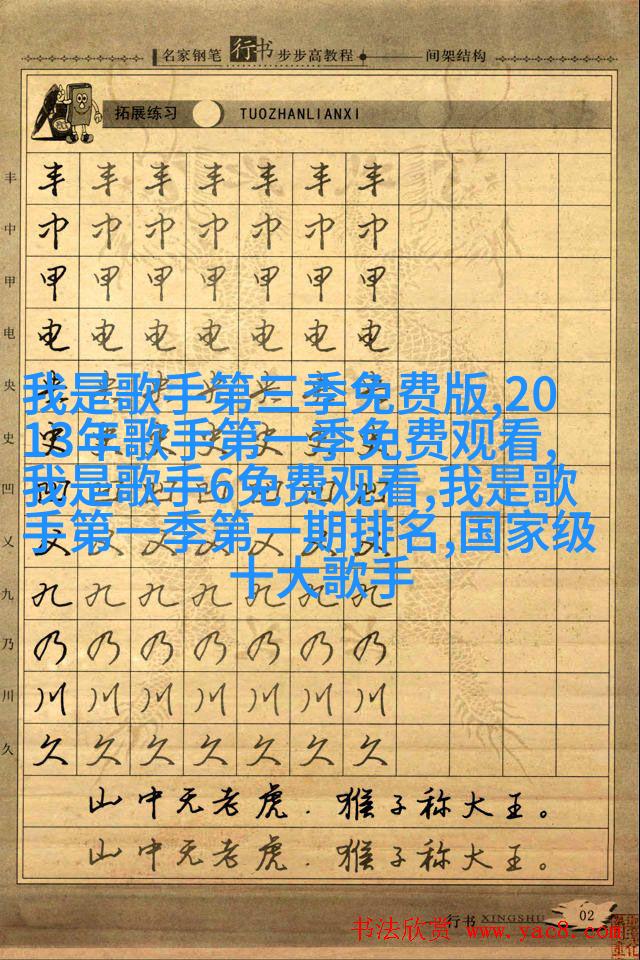 名家钢笔行书步步高教程 间架结构
拓展练习 TUOZHANLIANXI
丰 丰 丰 丰 丰 丰 丰 丰
中 中 中 中 中 中 中 中
甲 甲 甲 甲 甲 甲 甲 甲
电 电 电 电 电 电 电 电
央 央 央 央 央 央 央 央
我是歌手第三季免费版,20
史 史 史 史 史 史 史 史
13年歌手第一季免费观看,
凹 凹 凹 凹 凹 凹 凹 凹
我是歌手6免费观看,我是歌
乂 乂 乂 乂 乂 乂 乂 乂
手第一季第一期排名,国家级
十大歌手
九 九 九 九 九 九 九 九
乃 乃 乃 乃 乃 乃 乃 乃
川 川 川 川 川 川 川 川
久 久 久 久 久 久 久 久
山中无老虎．猴子称大王。
山中无老虎．猴子称大王。
行书 XINGSHU 02
书法欣赏 www.yac8.com